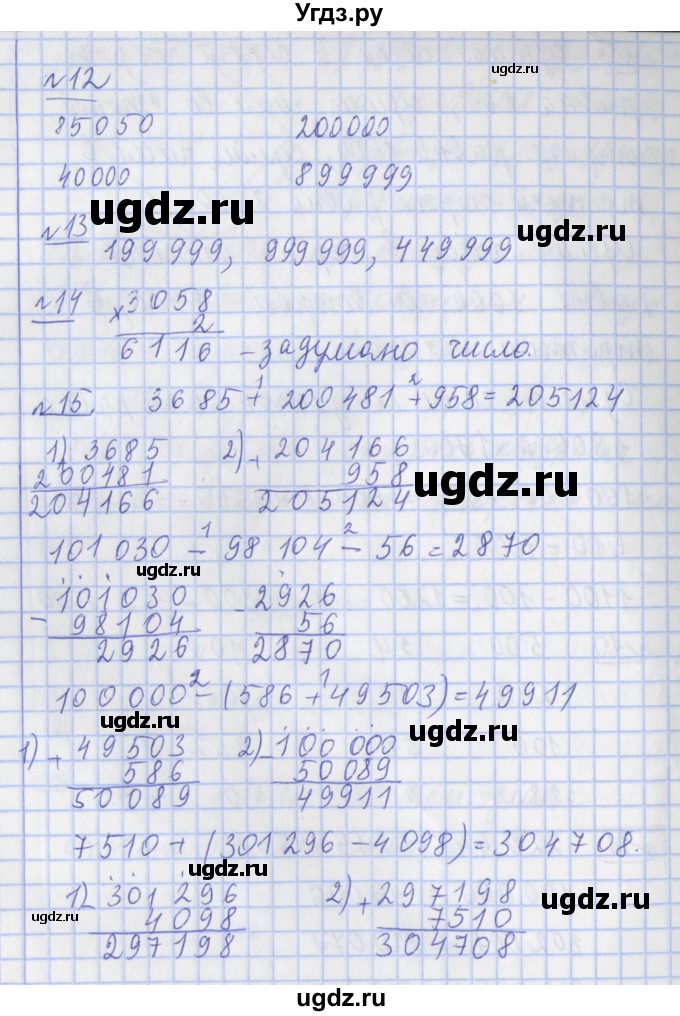 Угдз.ру
№12
85050 200000
40000 899999
№13 199999, 999999, 449999
№14 × 3058
2
6116 - задумано число.
№15. 3685 + 200481 + 958 = 205124
1) 3685 2) + 204166
200481 958
204166 205124
101030 - 98104 - 56 = 2870
- 101030 - 2926
98104 56
2926 2870
100000 - (586 + 49503) = 49911
1) + 49503 2) - 100000
586 50089
50089 49911
7510 + (301296 - 4098) = 304708.
1) - 301296 2) + 297198
4098 7510
297198 304708
ugdz.ru
ugdz.ru
ugdz.ru
ugdz.ru
ugdz.ru
ugdz.ru
ugdz.ru
ugdz.ru
ugdz.ru
ugdz.ru
ugdz.ru